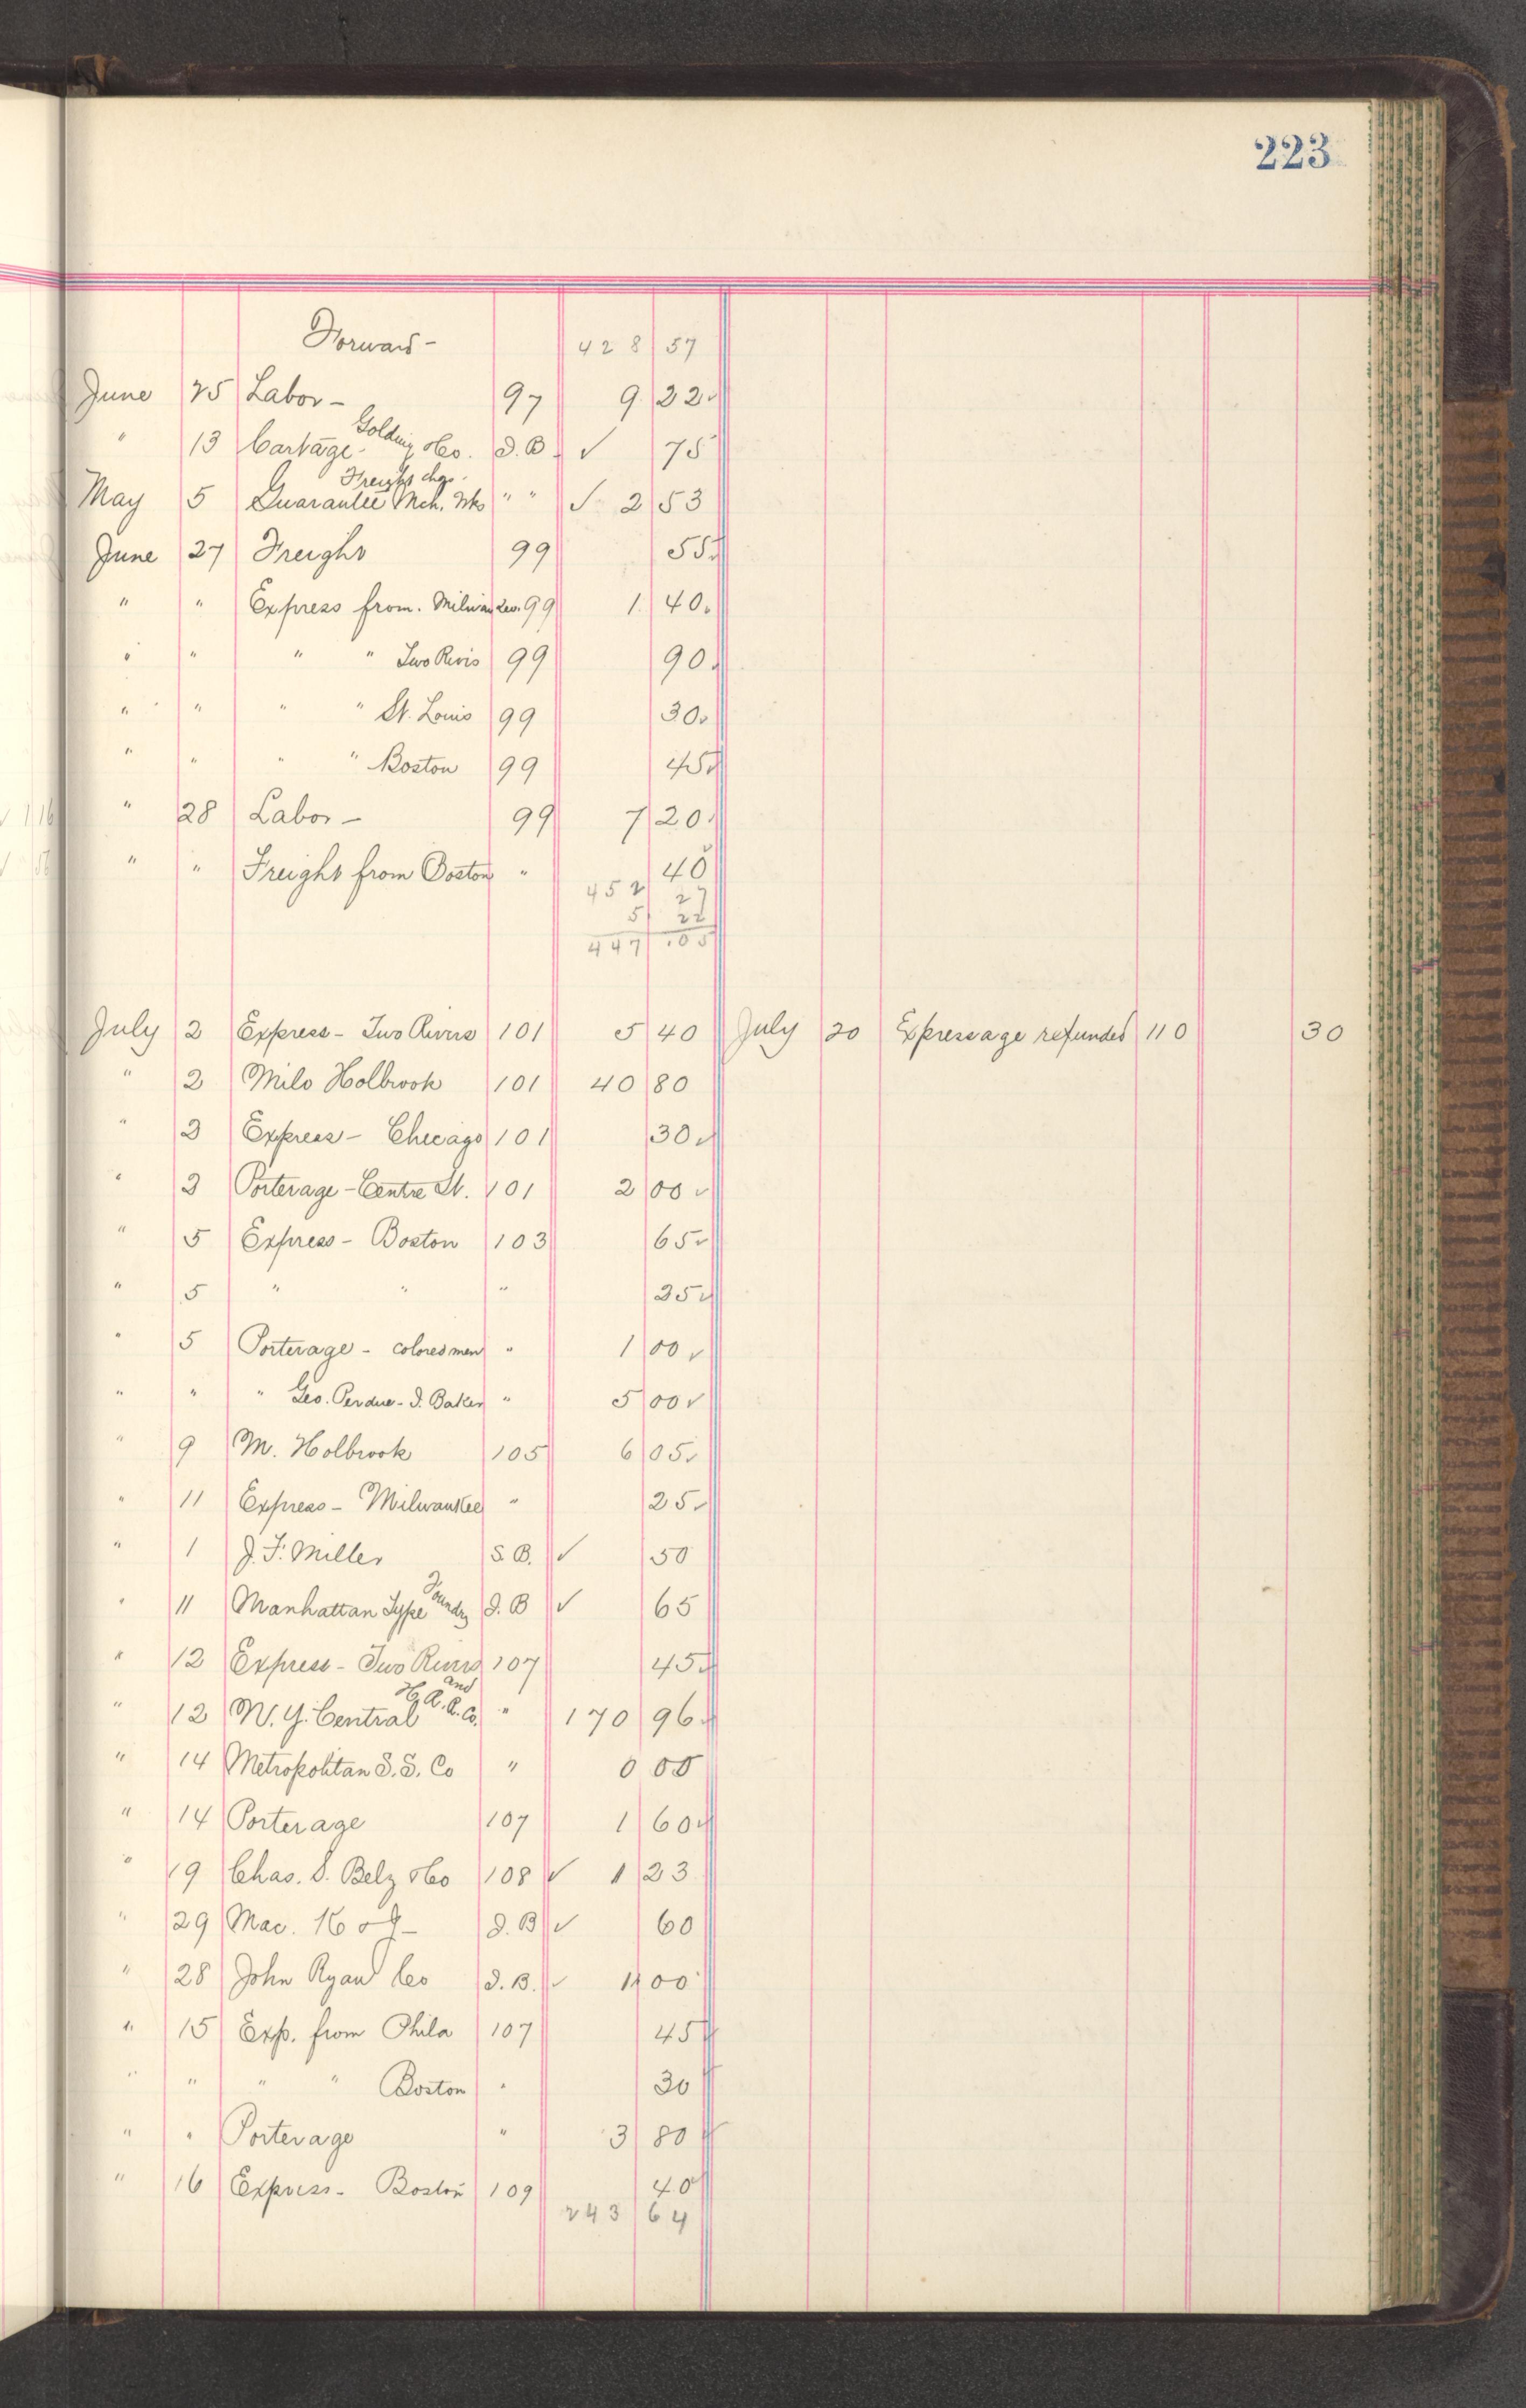 223
Forward - 428 57
June 25 Labor - 97 9 22 ✓
" 13 Cartage - Golding & Co. J.B. ✓ 75
May 5 Guarantee Mch. Wks Freight chgs. " " ✓ 2 53
June 27 Freight 99 55 ✓
" " Express from. Milwaukee. 99 1 40 ✓
" " " " Two Rivrs 99 90 ✓
" " " " St. Louis 99 30 ✓
" " " " Boston 99 45 ✓
" 28 Labor - 99 7 20 ✓
" " Freight from Boston " 40 ✓
452 27
5 22
447 105
July 2 Express - Two Rivers 101 5 40 July 20 Expressage refunded 110 30
" 2 Milo Holbrook 101 40 80
" 3 Express - Chicago 101 30 ✓
" 3 Porterage - Centre St. 101 2 00 ✓
" 5 Express - Boston 103 65 ✓
" 5 " " " 35 ✓
" 5 Porterage - colored men " 1 00 ✓
" " " Geo. Perdue - J. Baker " 5 00 ✓
" 9 M. Holbrook 105 6 05 ✓
" 11 Express - Milwaukee " 25 ✓
" 1 J. F. Miller S. B. ✓ 50
" 11 Manhattan Type Foundry J. B ✓ 65
" 12 Express - Two Rivers 107 45 ✓
" 12 N. Y. Central and H. R. R. Co. " 170 96 ✓
" 14 Metropolitan S. S. Co " 0 00
" 14 Porterage 107 1 60 ✓
" 19 Chas. S. Belz & Co 108 ✓ 1 23
" 29 Mac. K & J - J. B ✓ 60
" 28 John Ryan Co J. B. ✓ 1 00
" 15 Exp. from Phila 107 45 ✓
" " " " Boston " 30 ✓
" " Porterage " 3 80 ✓
" 16 Express - Boston 109 40 ✓
243 64